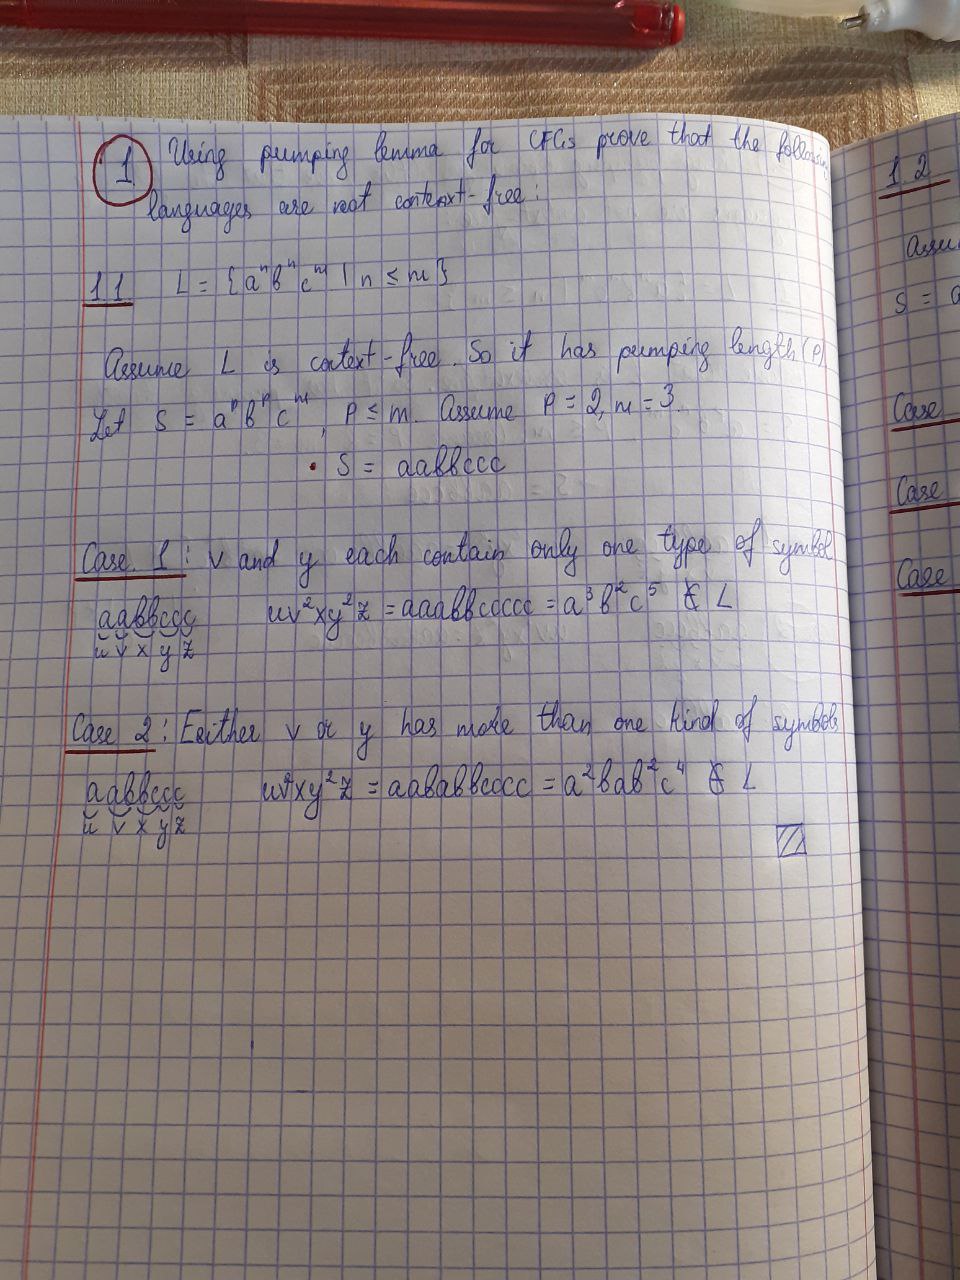 1 Using pumping lemma for CFGs prove that the following
languages are not context-free:
1.1 L = {aⁿbⁿcᵐ | n ≤ m}
Assume L is context-free. So it has pumping length (p)
Let S = aᵖbᵖcᵐ, p ≤ m. Assume p = 2, m = 3.
• S = aabbccc
Case 1: v and y each contain only one type of symbol
aabbccc uv²xy²z = aaabbccccc = a³b²c⁵ ∉ L
u v x y z
Case 2: Either v or y has more than one kind of symbols
aabbccc uv²xy²z = aabab​bcccc = a²bab²c⁴ ∉ L
u v x y z
1.2
Assu
S = a
Case
Case
Case